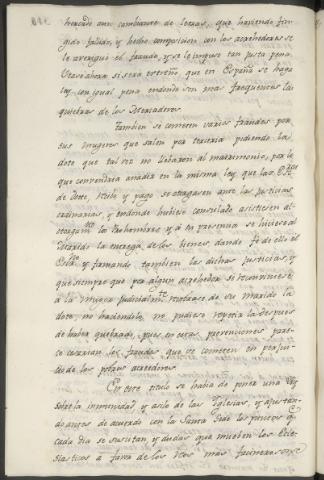 hercado aun cambiante de Letras, que haviendo fin-
gido fallido, y hecho composicion con los acrehedores se
le averiguó el fraude, y se le impuso tan justa pena.
Vease ahora si será estraño que en España se haga
ley con igual pena endonde son mas frequentes las
quiebras de los Mercaderes.
Tambien se cometen varios fraudes por
sus mugeres que salen por terceria pidiendo la
dote que tal vez no llebaron al matrimonio, por lo
que convendria añadir en la misma ley, que las Esc.ras
de dote, titulo y pago se otorgasen ante las justicias
ordinarias, y endonde hubiese consulado asistiesen al
otorgam.to los Prohombres, y á su presencia se hiciese al
Marido la entrega de los bienes, dando fé de ello el
Es.no y firmando tambien las dichas Justicias, y
que siempre que por algun acrehedor se reconviniese
á la muger judicialm.te recobrase de su marido la
dote, no haciendolo, no pudiese repetirla despues
de haber quebrado, pues con estas prevenciones pare-
ce cesarian los fraudes que se cometen en perjui-
cio de los pobres acrehedores.
En este titulo se habia de poner una ley
sobre la inmunidad, y asilo de las Iglesias, y ajustan-
dose antes de acuerdo con la Santa Sede los puntos q.e
cada dia se suscitan, y dudas que mueben los Ecle-
siasticos á favor de los Reos mas facinerosos